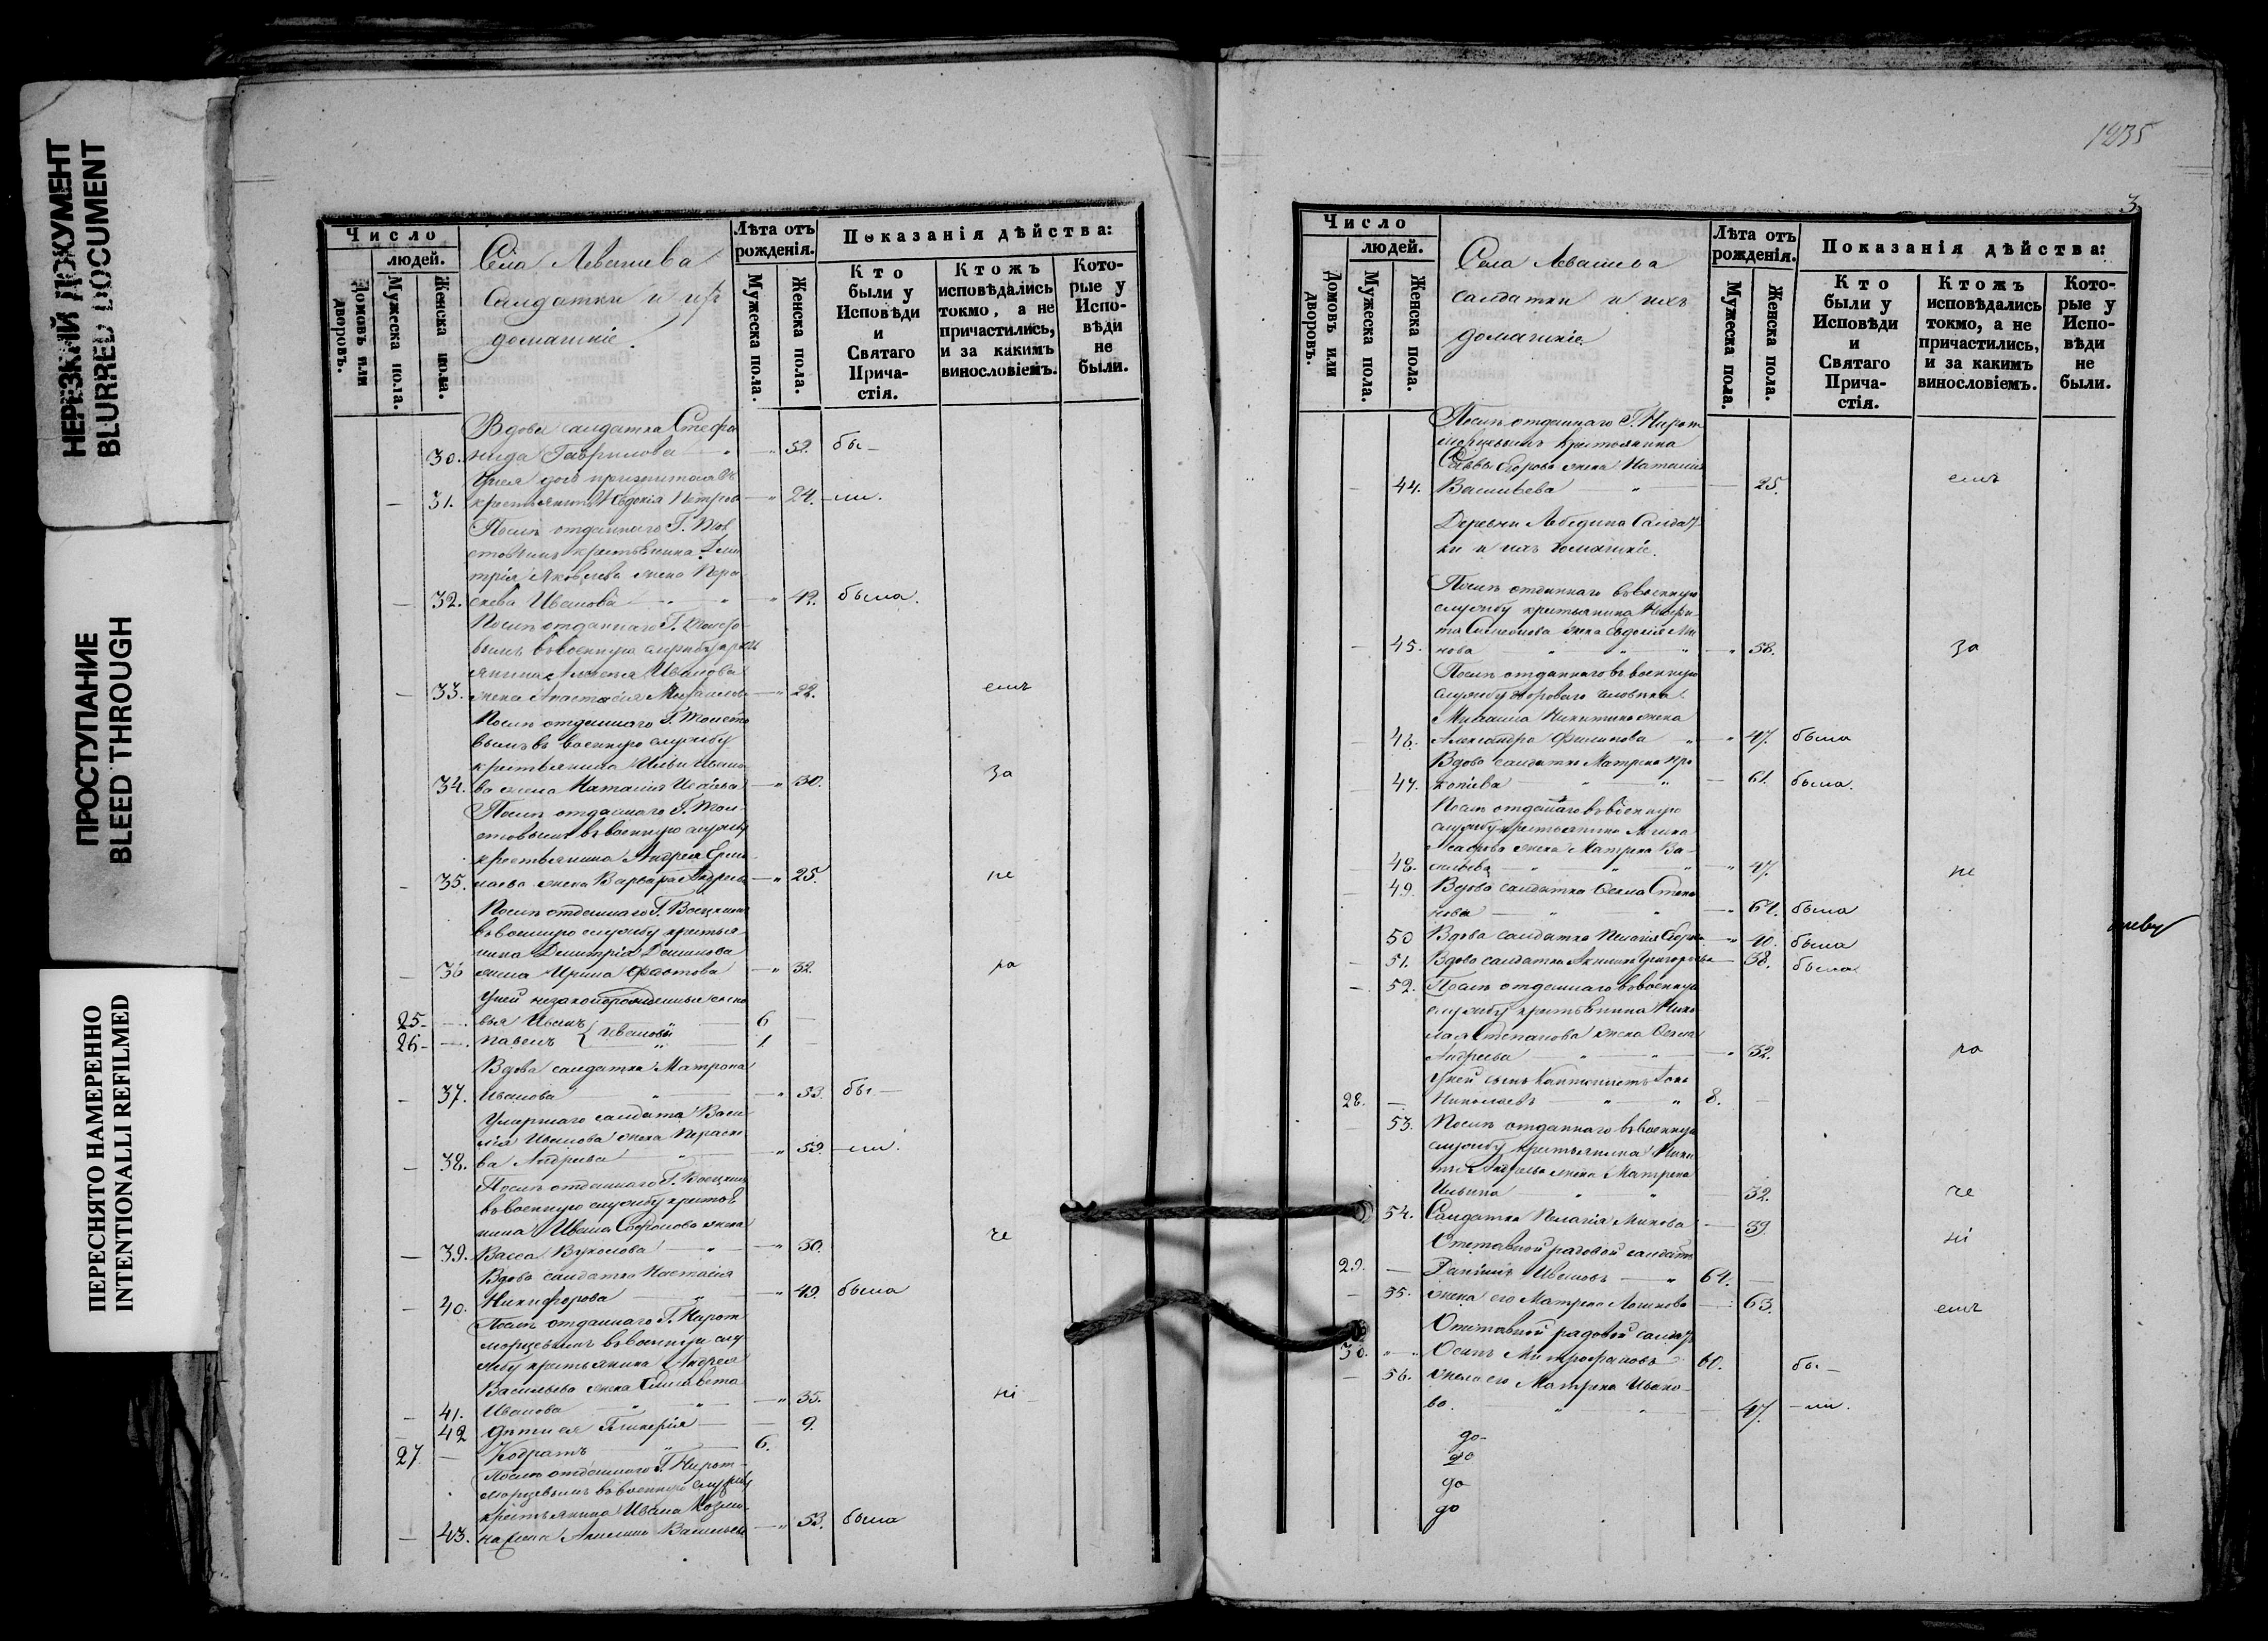 НЕРЕЗКИЙ ДОКУМЕНТ
BLURRED DOCUMENT
ПРОСТУПАНИЕ
BLEED THROUGH
ПЕРЕСНЯТО НАМЕРЕННО
INTENTIONALLI REFILMED
Число
людей.
Домовъ или дворовъ.
Мужеска пола.
Женска пола.
Села Левашева
солдатки и ихъ
домашніе.
Лѣта отъ рожденія.
Мужеска пола.
Женска пола.
Показанія дѣйства:
Кто были у Исповѣди и Святаго Прича-стія.
Ктожъ исповѣдались токмо, а не причастились, и за какимъ винословіемъ.
Кото-рые у Испо-вѣди не были.
Вдова солдатка Стефа
30. нида Гаврилова " 52. бы-
31. крестьянинъ Авдокія Петрова " 24. -ли.
Послѣ отданнаго Г. Тол
стовымъ крестьянина Дми
трія Яковлева жена Пара
32. скева Иванова " 42. была.
Послѣ отданнаго Г. Толсто
вымъ въ военную службу кресть
янина Алексея Иванова
33. жена Анастасія Михайлова " 22. емъ
Послѣ отданнаго Г. Толсто
вымъ въ военную службу
крестьянина Ильи Ивано
34. ва жена Наталія Исаева " 30. за
Послѣ отданнаго Г. Тол
стовымъ въ военную службу
крестьянина Андрея Ерми
35. лаева жена Варвара Андреева " 25. не
Послѣ отданнаго Г. Воецкимъ
въ военную службу крестья
нина Димитрія
36 жена Ирина Фаотова " 32. ра
У ней незаконорожденные сыно
25. вья Иванъ } Ивановы 6
26. Павелъ 1.
Вдова солдатка Матрона
37. Иванова " 53. бы-
Умершаго солдата Васи
лія Иванова жена Параске
38. ва Андреева " 59. -ли.
Послѣ отданнаго Г. Воецкимъ
въ военную службу крестья
нина Ивана Софронова жена
39. Васса Вуколова " 30. че
Вдова солдатка Настасія
40. Никифорова " 49. была
Послѣ отданнаго Г. Нарот
морцевымъ въ военную слу
жбу крестьянина Андрея
Васильева жена Елисавета
41. Иванова " 35. ні
42 дѣти ея Гликерія 9.
27 Кодратъ 6.
Послѣ отданнаго Г. Нарот-
морцевымъ въ военную службу
крестьянина Ивана Козми
43. на жена Акилина Васильева " 53. была
1235
3
Число
людей.
Домовъ или дворовъ.
Мужеска пола.
Женска пола.
Села Левашева
солдатки и ихъ
домашніе.
Лѣта отъ рожденія.
Мужеска пола.
Женска пола.
Показанія дѣйства:
Кто были у Исповѣди и Святаго Прича-стія.
Ктожъ исповѣдались токмо, а не причастились, и за какимъ винословіемъ.
Кото-рые у Испо-вѣди не были.
Послѣ отданнаго Г. Нарот
морцевымъ крестьянина
Саввы Егорова жена Наталія
44. Васильева " 25. емъ
Деревни Лебедина Солдат
ки и ихъ домашніе.
Послѣ отданнаго въ военную
службу крестьянина Ники
та Симеонова жена Евдокія Ми
45. нова " 38. за
Послѣ отданнаго въ военную
службу двороваго человѣка
Михаила Никитина жена
46. Александра Филипова " 47. была
Вдова солдатка Матрена Про
47. копіева 61. была.
Послѣ отданнаго въ военную
службу крестьянина
жена Матрена Ва
48. сильева " 47. не
49. Вдова солдатка Фекла Степа
нова " 61. была
50 Вдова солдатка Пелагія Егорова " 40. была
51. Вдова солдатка Акилина Григорьева 58. была
52. Послѣ отданнаго въ военную
службу крестьянина Нико
лая Степанова жена Фекла
Андреева " 32. ра
У ней сынъ кантонистъ
28. Николаевъ " 8.
53. Послѣ отданнаго въ военную
службу крестьянина Ники
ты Андреева жена Матрена
Ильина " 32. че
54. Солдатка Пелагія Минова 39. ні
Отставной рядовой солдатъ
29. Данiилъ Ивановъ " 64.
55. жена его Матрена Логинова 63. емъ
Отставной рядовой солдатъ
30. Осипъ Митрофановъ 60. бы-
56. жена его Матрена Ивано-
ва. " 47. -ли.
до-
до
до
до